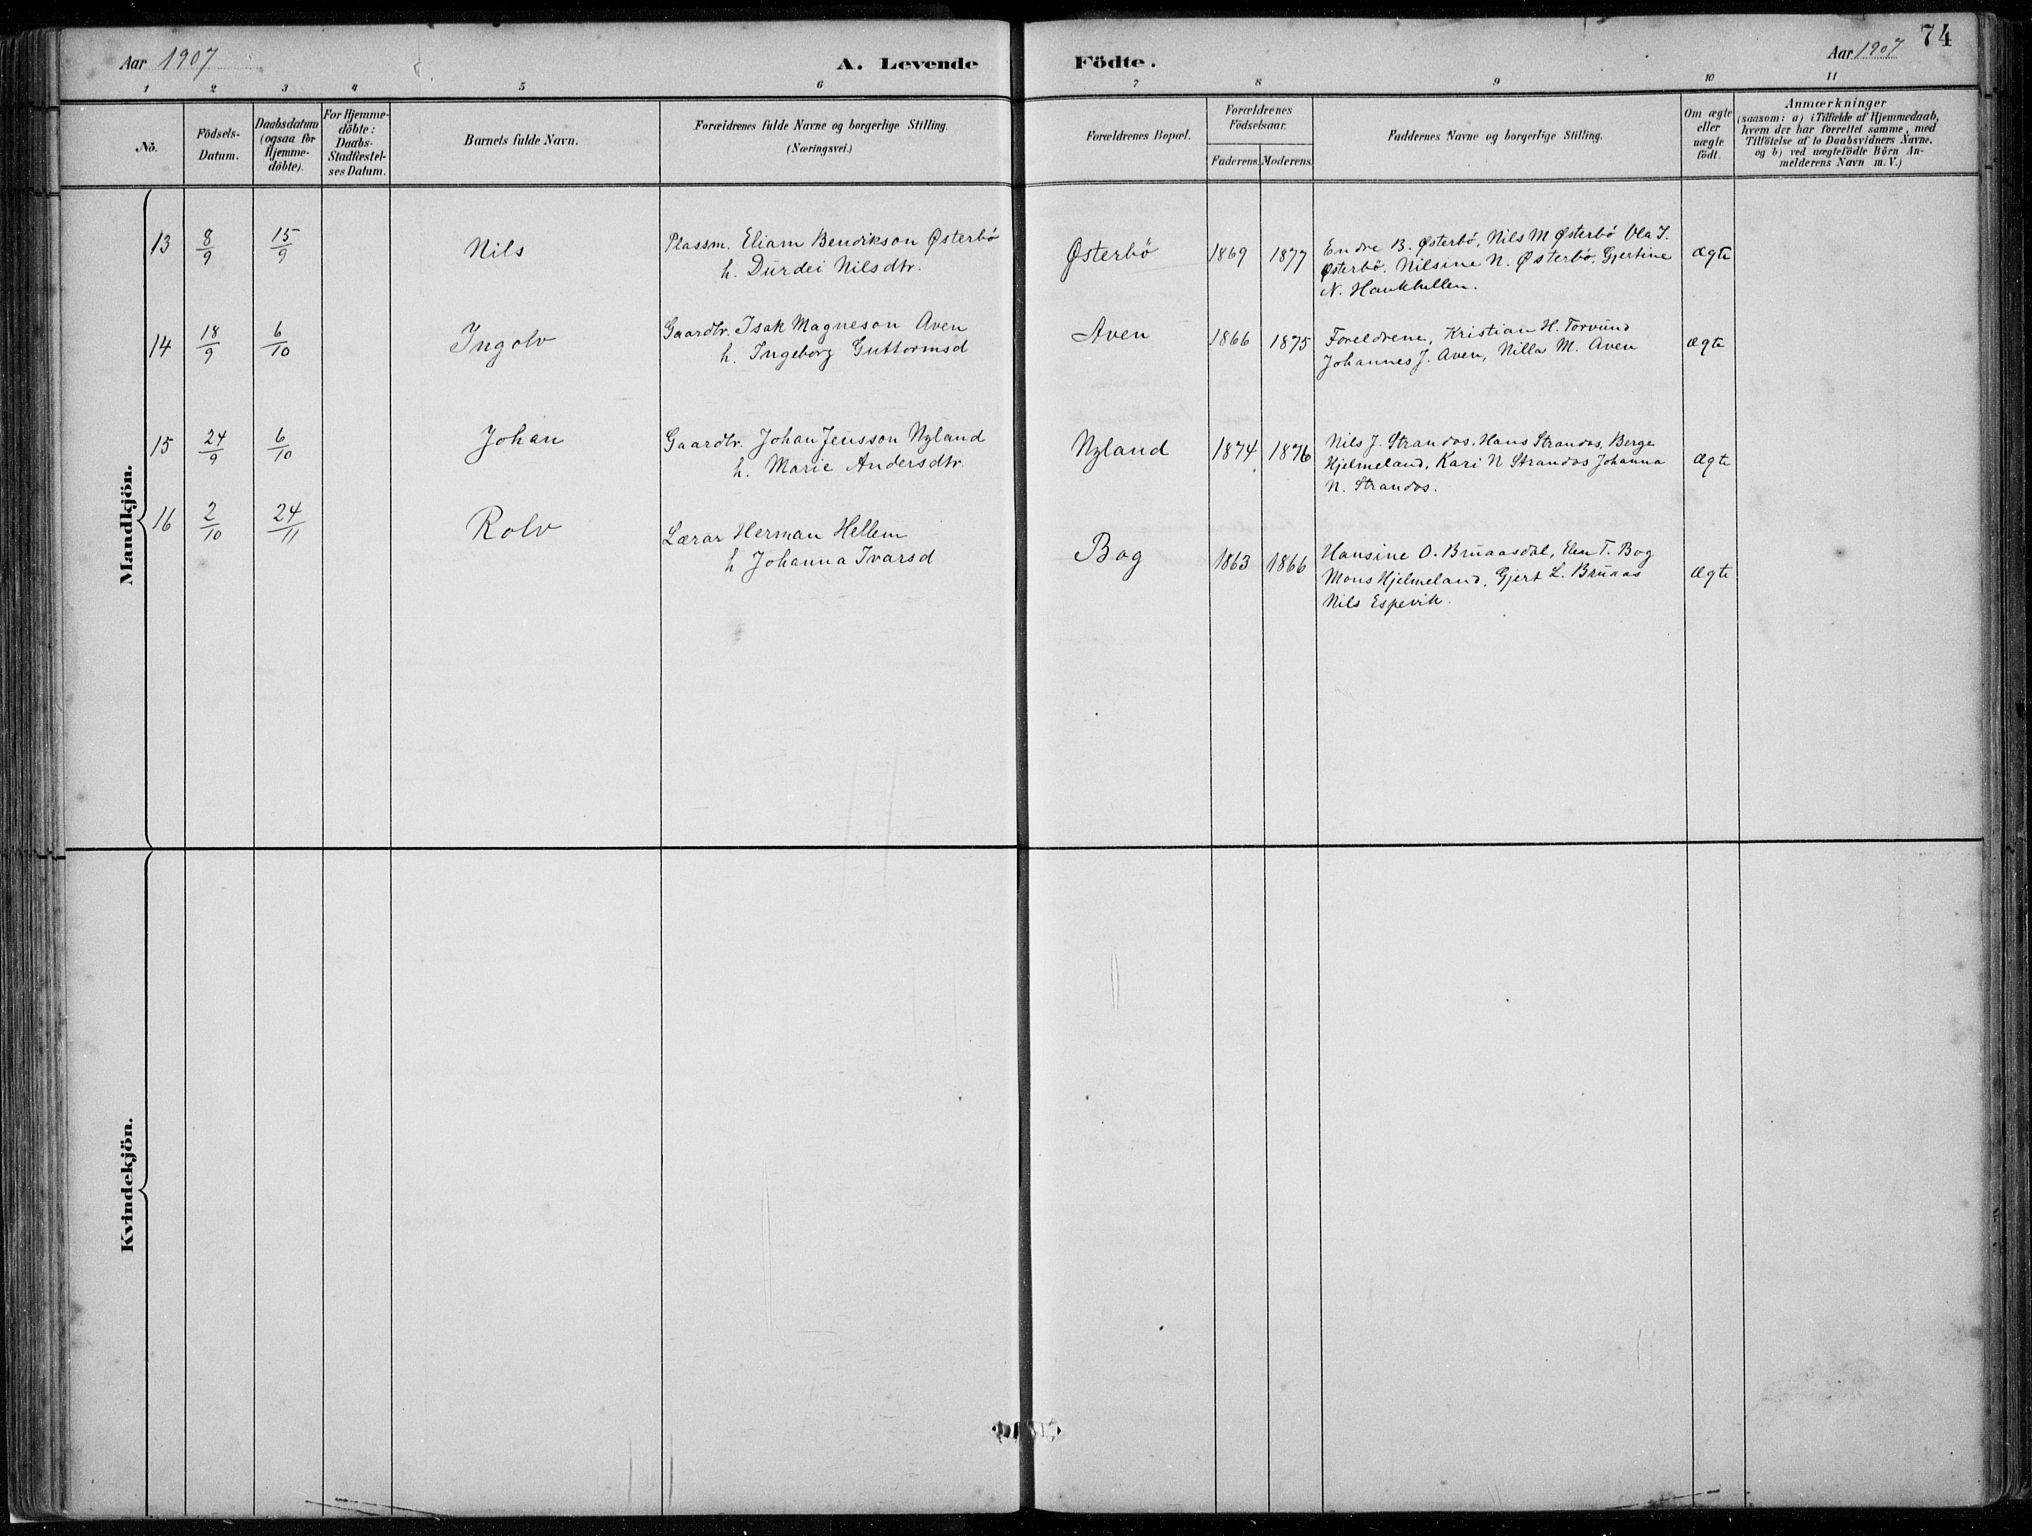 74
Aar 1907
A. Levende Födte.
Aar 1907
1 2 3 4 5 6 7 8 9 10 11
No.
Födsels-
Datum.
Daabsdatum
(ogsaa for
Hjemme-
döbte).
For Hjemme-
döbte:
Daabs-
Stadfæstel-
ses Datum.
Barnets fulde Navn.
Forældrenes fulde Navne og borgerlige Stilling.
(Næringsvei.)
Forældrenes Bopæl.
Forældrenes
Födselsaar.
Faderens. Moderens.
Faddernes Navne og borgerlige Stilling.
Om ægte
eller
uægte
födt.
Anmærkninger
(saasom: a) i Tilfælde af Hjemmedaab,
hvem der har forrettet samme, med
Tilföielse af to Daabsvidners Navne,
og b) ved uægtefödte Börn An-
melderens Navn m. V.)
Mandkjön.
13 8/9 15/9 Nils Plassm. Eliam Bendikson Østerbö Østerbö 1869 1877 Endre B. Østerbö, Nils M Østerbö Ola I. ægte
h. Durdei Nilsdtr. Østerbö, Nilsine N. Østerbö, Gjertine
N. Haukhellen.
14 18/9 6/10 Ingolv Gaardbr. Isak Magneson Aven Aven 1866 1875 Foreldrene, Kristian H. Torvund ægte
h. Ingeborg Guttormsd Johannes J. Aven, Nilla M. Aven
15 24/9 6/10 Johan Gaardbr. Johan Jensson Nyland Nyland 1874 1876 Nils J. Strandos, Hans Strandos, Berge ægte
h. Marie Andersdtr. Hjelmeland, Kari N Strandos Johanna
N. Strandos.
16 2/10 24/11 Rolv Lærar Herman Hellem Bog 1863 1866 Hansine O. Bruaasdal, Elen T. Bog ægte
h Johanna Ivarsd Mons Hjelmeland, Gjert L. Bruaas
Nils Espevik.
Kvindekjön.